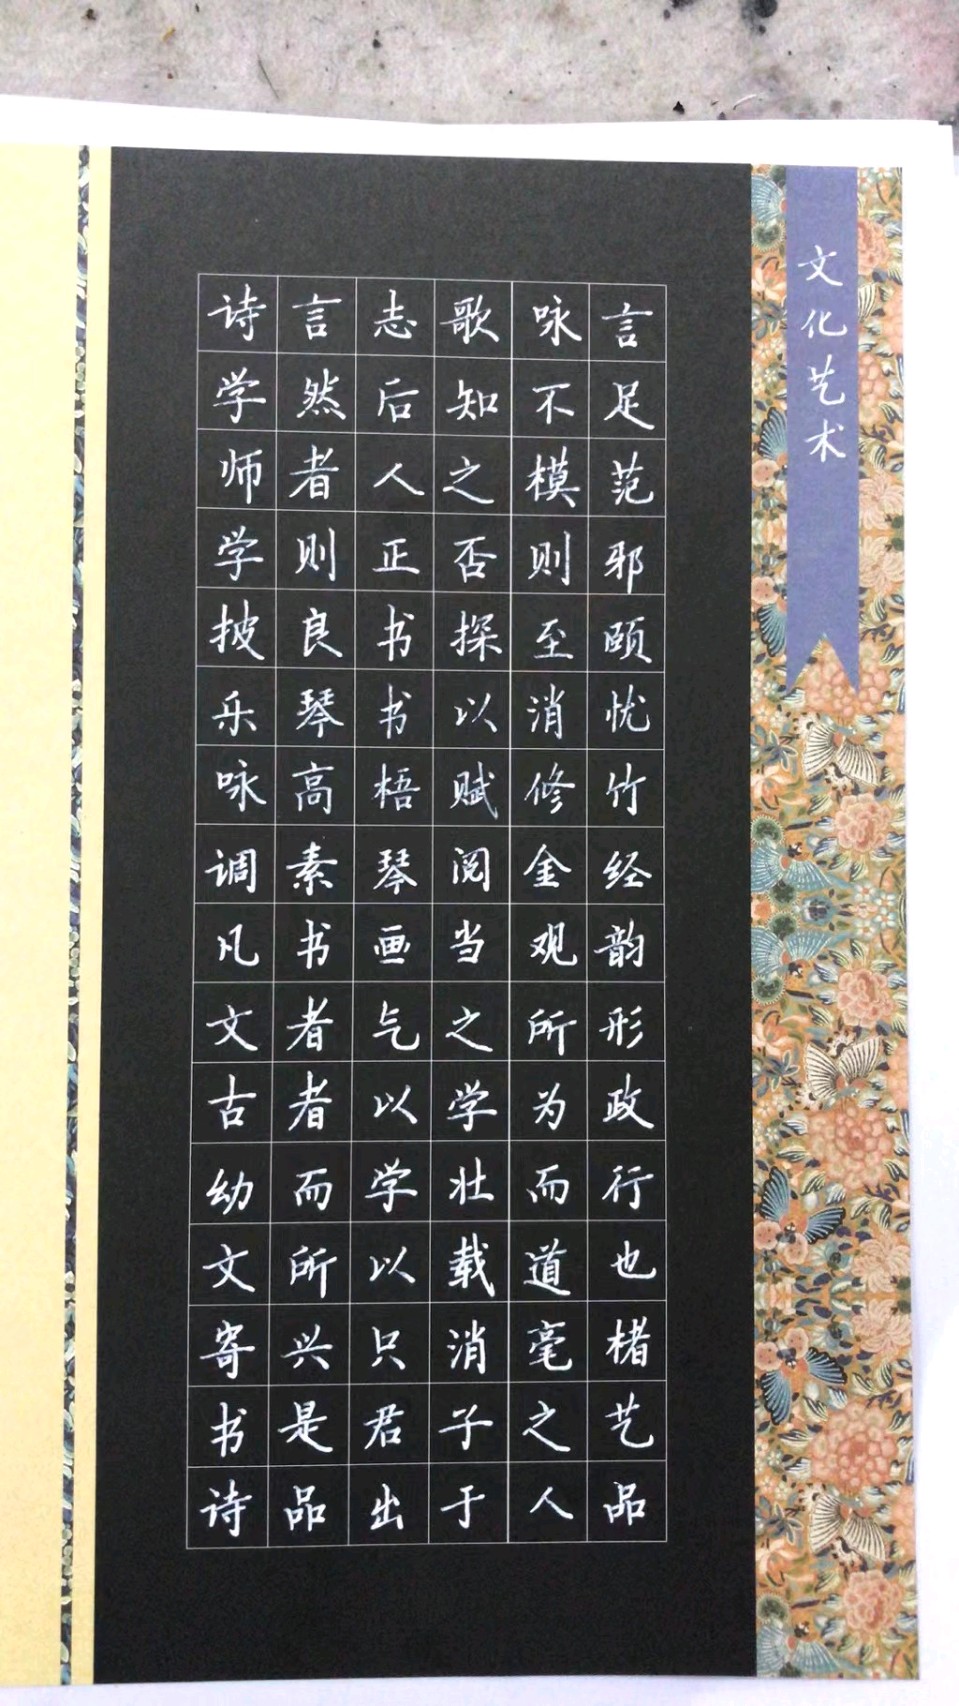 文化艺术
诗言志歌咏言
学然后知不足
师者人之模范
学则正否则邪
披良书探至颐
乐琴书以消忧
咏高梧赋修竹
调素琴阅金经
凡书画当观韵
文者气之所形
古者以学为政
幼而学壮而行
文所以载道也
寄兴只消毫楮
书是君子之艺
诗品出于人品